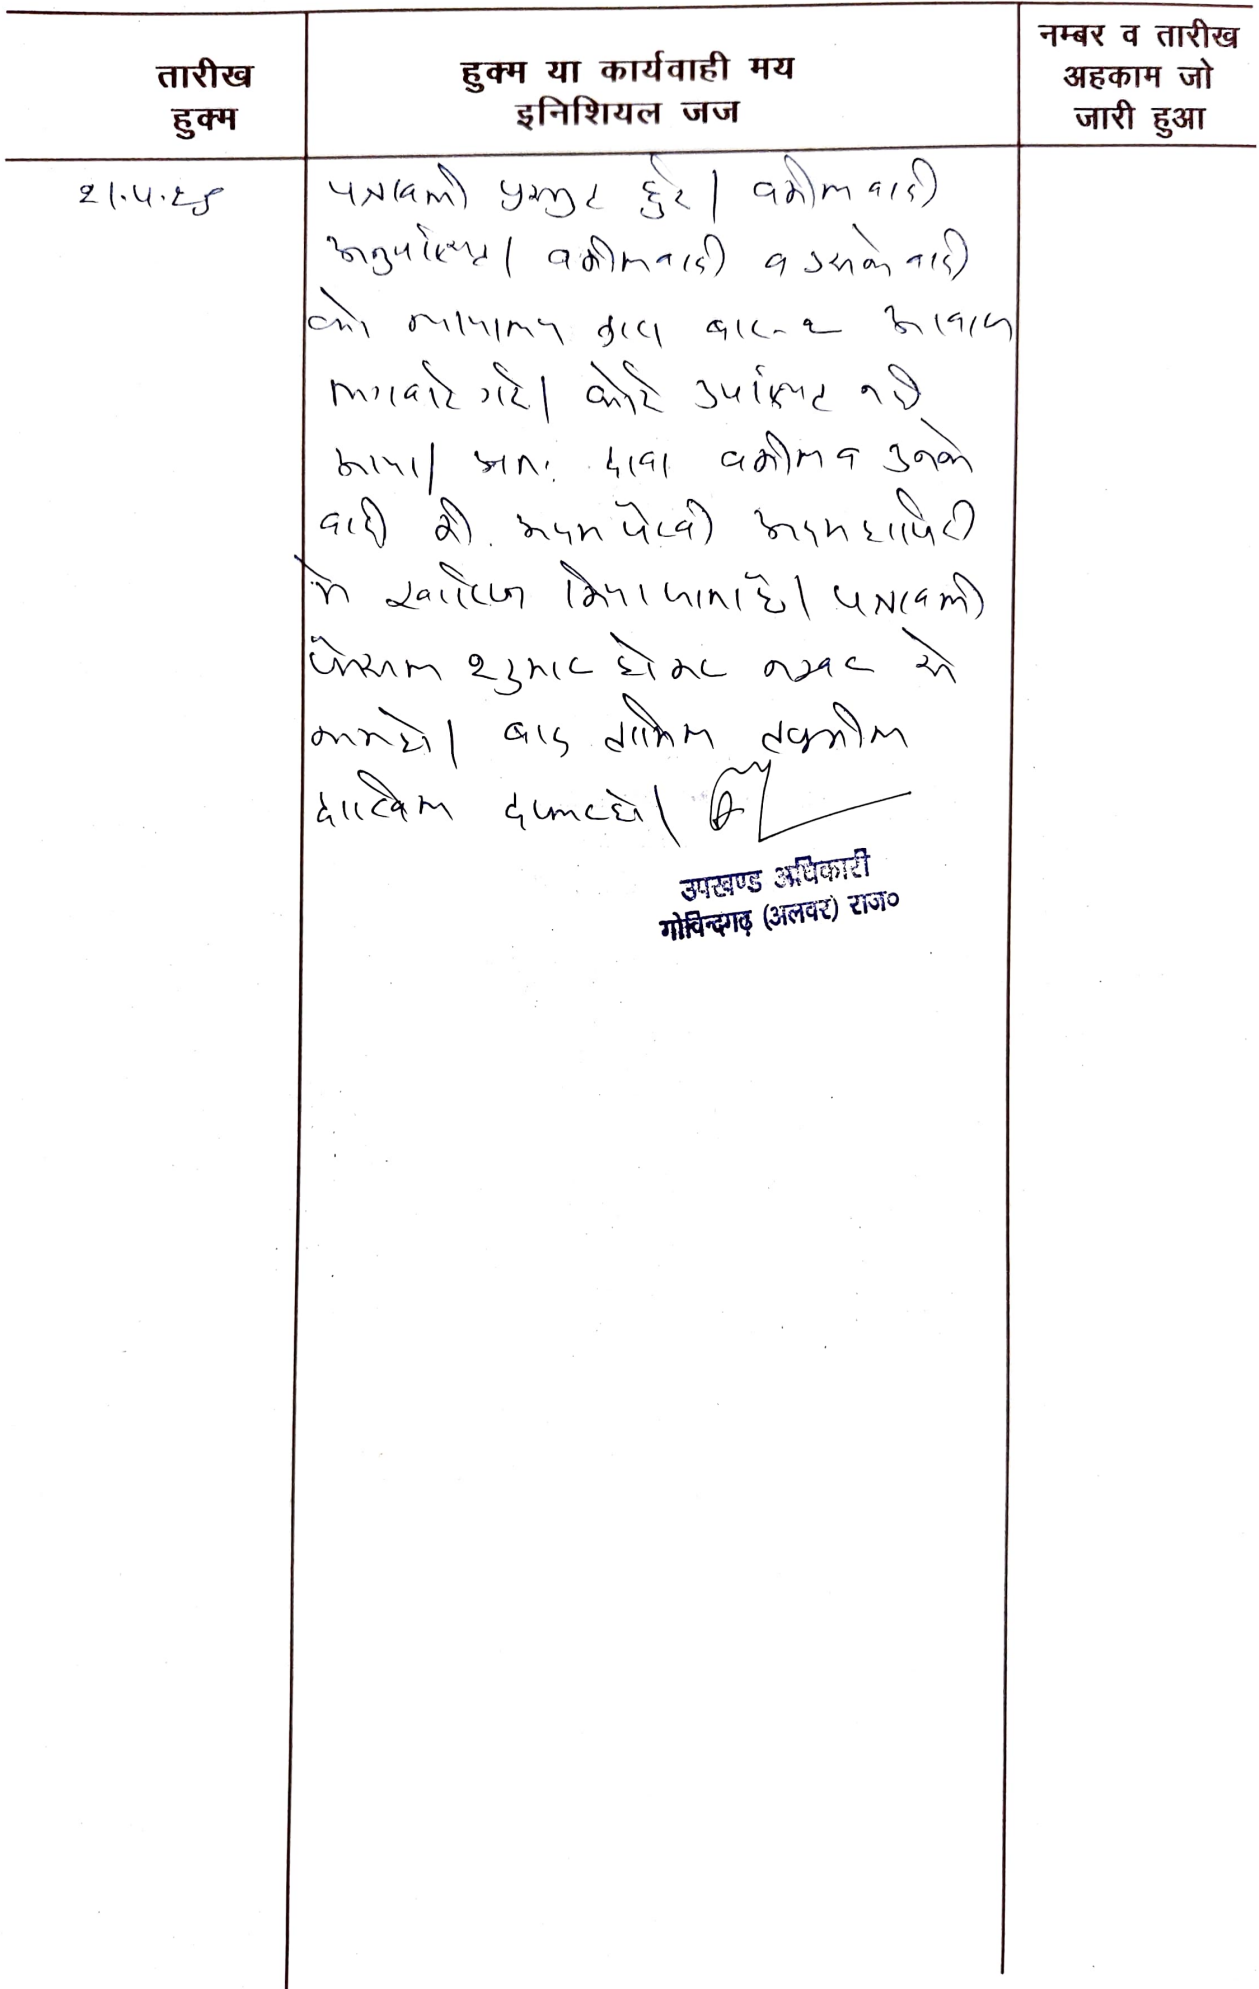 तारीख
हुक्म
हुक्म या कार्यवाही मय
इनिशियल जज
नम्बर व तारीख
अहकाम जो
जारी हुआ
पत्रावली प्रस्तुत हुई। वकील वादी
अनुपस्थित। वकील वादी व उसके वादी
को न्यायालय द्वारा बार-२ आवाज
लगवाई गई। कोई उपस्थित नही
आया। अतः दावा वकील व उनके
वादी की अदम पैरवी अदम हाजिरी
मे खारिज किया जाता है। पत्रावली
फैसल शुमार होकर नम्बर से
कम हो। बाद तकमील
दाखिल दफ्तर हो।
उपखण्ड अधिकारी
गोविन्दगढ़ (अलवर) राज०